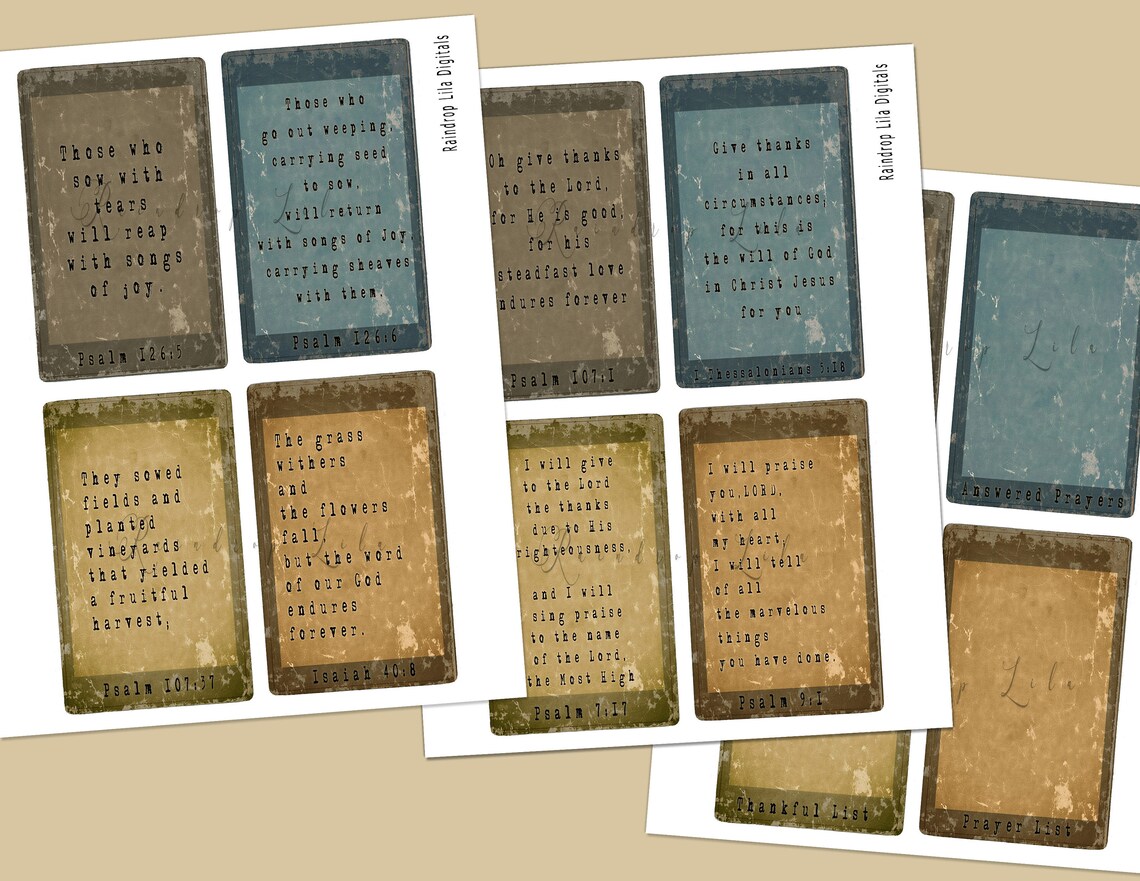 Raindrop Lila Digitals
Those who
sow with
tears
will reap
with songs
of joy.
Psalm 126:5
Those who
go out weeping,
carrying seed
to sow,
will return
with songs of Joy,
carrying sheaves
with them.
Psalm 126:6
They sowed
fields and
planted
vineyards
that yielded
a fruitful
harvest;
Psalm 107:37
The grass
withers
and
the flowers
fall,
but the word
of our God
endures
forever.
Isaiah 40:8
Raindrop Lila
Raindrop Lila
Raindrop Lila Digitals
Oh give thanks
to the Lord,
for He is good,
for his
steadfast love
endures forever
Psalm 107:1
Give thanks
in all
circumstances,
for this is
the will of God
in Christ Jesus
for you
1 Thessalonians 5:18
I will give
to the Lord
the thanks
due to His
righteousness,
and I will
sing praise
to the name
of the Lord,
the Most High
Psalm 7:17
I will praise
you,LORD,
with all
my heart,
I will tell
of all
the marvelous
things
you have done.
Psalm 9:1
Raindrop Lila
Raindrop Lila
Answered Prayers
Thankful List
Prayer List
Lila
Lila